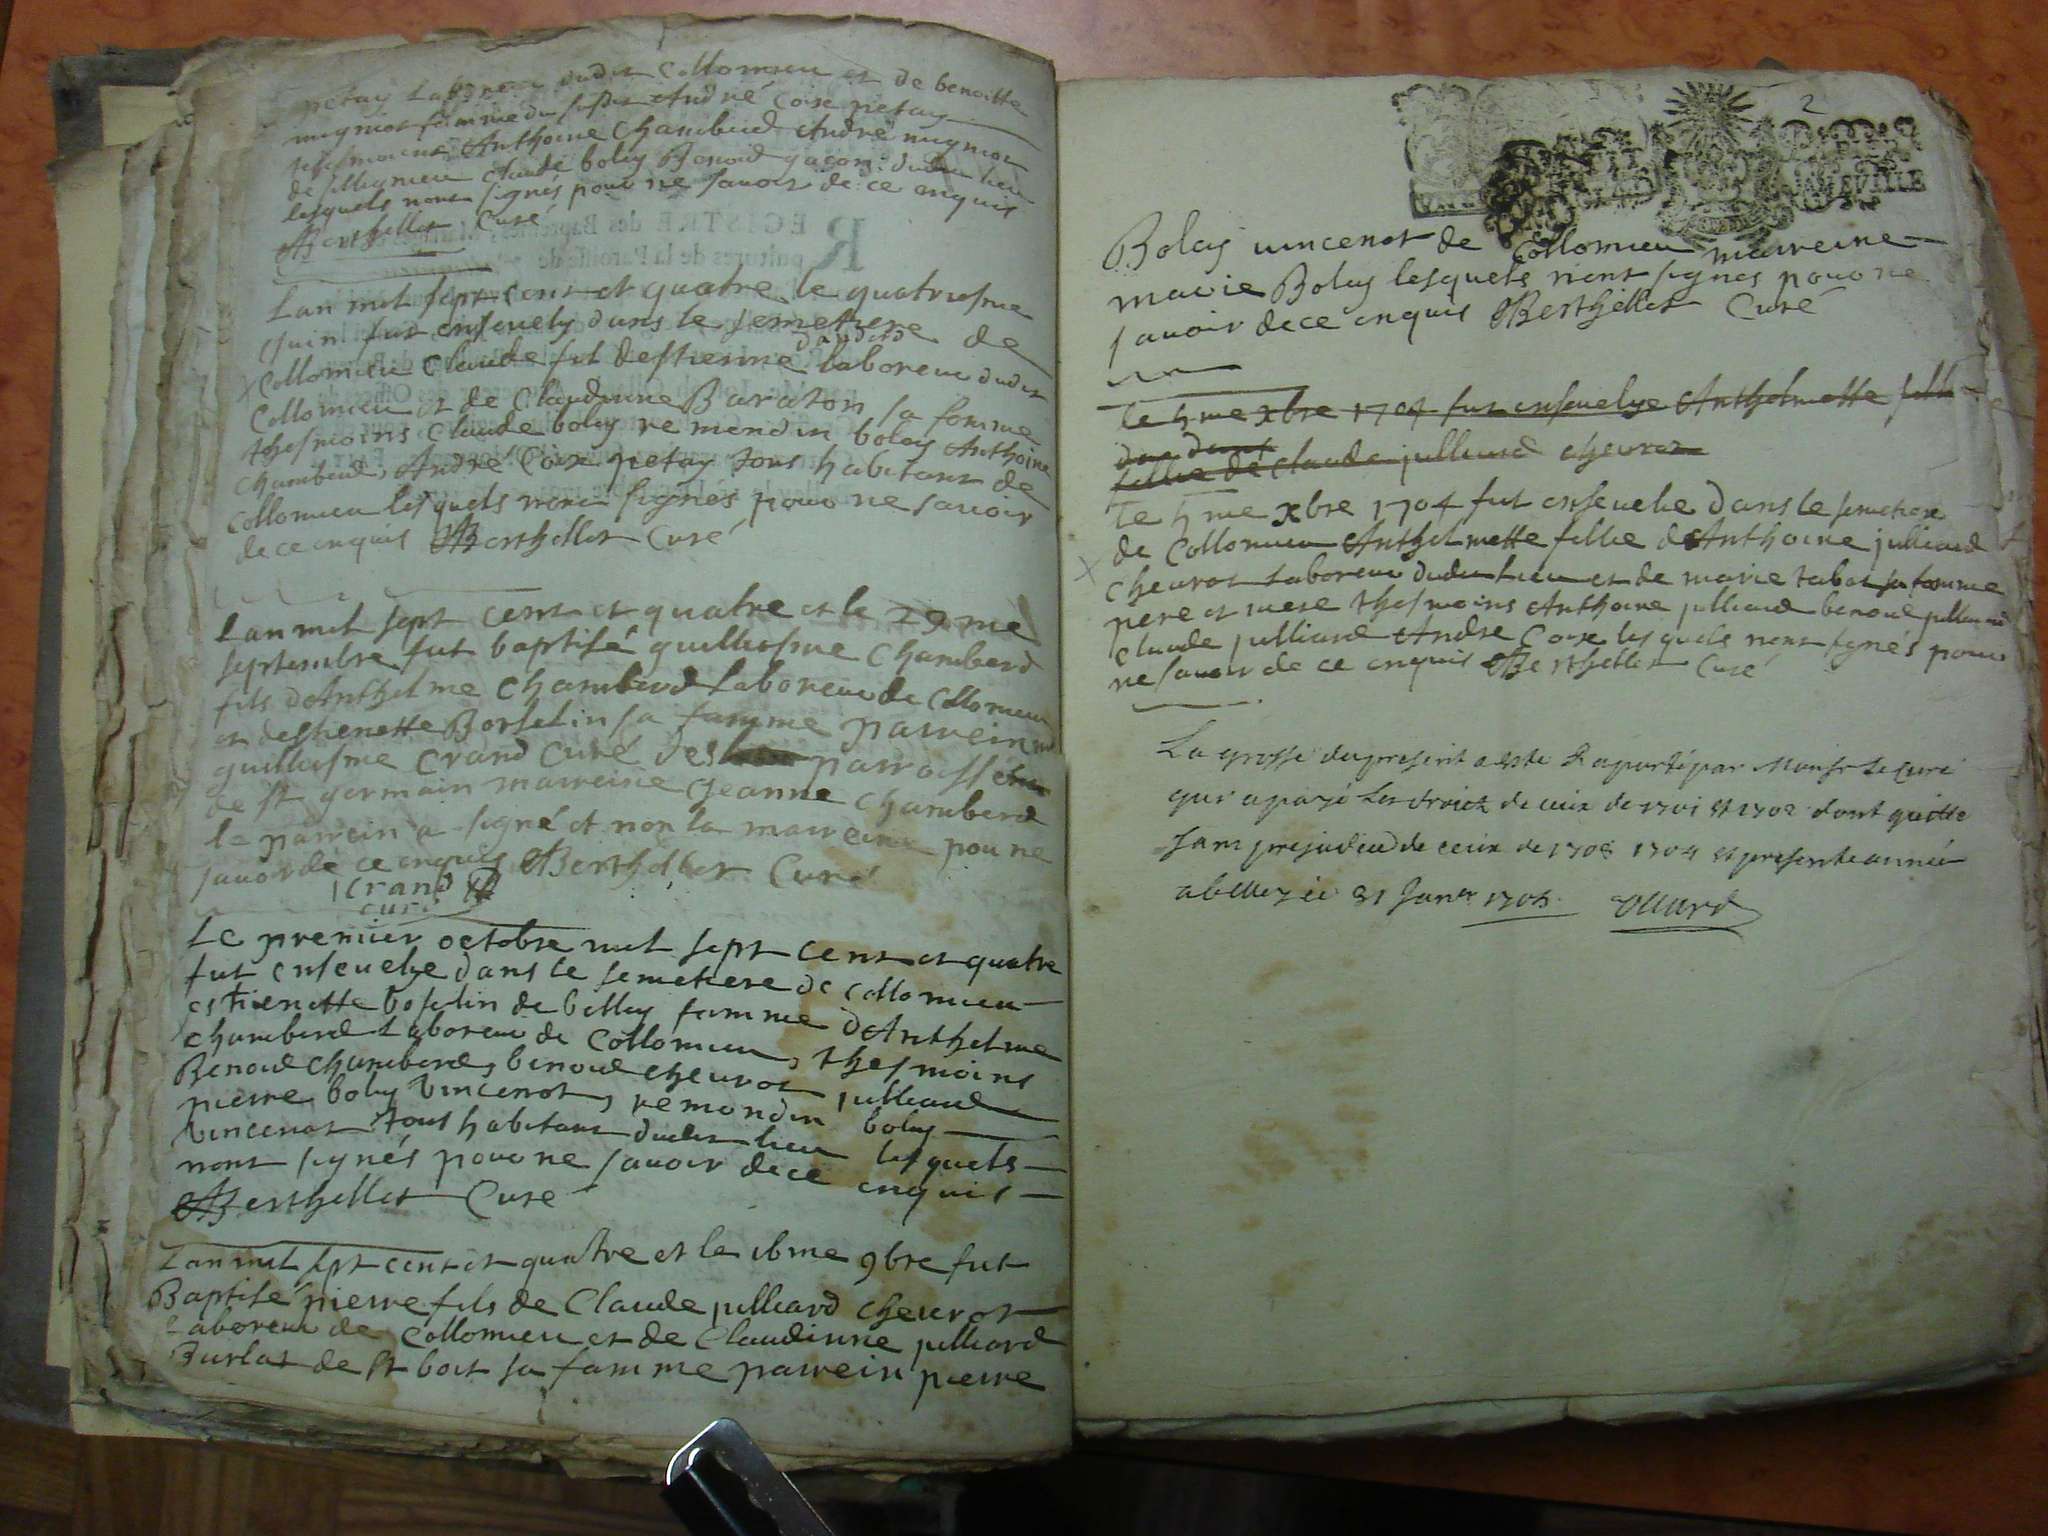 petay Laboreur dudit Collomieu et de benoitte
mignot femme du susdit André Coix petay
thesmoins Anthoine Chamberd André mignot
de sillignieu claude boley Benoid gacon dudit lieu
lesquels nont signés pour ne savoir de ce enquis
Berthellet Curé
Lan mil sept cent et quatre le quatriesme
Juin fut ensevely dans le semetiere de
Collomieu Claude fil destienne laboreur dudit
Collomieu et de Claudinne Baraton sa femme
thesmoins Claude boley remondin boley Anthoine
chamberd, André Coix petay tous habitans de
collomieu lesquels nont signés pour ne savoir
de ce enquis Berthellet Curé
Lan mil sept cent et quatre et le 29me
septembre fut baptisé guilliesme Chamberd
fils dAnthelme Chamberd Laboreur de Collomieu
et destienette Borselin sa famme parrein
guilliesme Crand Curé des parroisse
de st germain marreine Jeanne Chamberd
le parrein a signé et non la marreine pou ne
savoir de ce enquis Berthellet Curé
Crand
curé
Le premier octobre mil sept cent et quatre
fut ensevelye dans le semetiere de collomieu
estienette boselin de belley famme dAnthelme
chamberd Laboreur de Collomieu, thesmoins
Benoid Chamberd, benoid chevrot julliard
pierre boley Vincenot, remondin boley
Vincenot tous habitans dudit lieu lesquels
nont signés pour ne savoir de ce enquis
Berthellet Cure
Lan mil sept cent et quatre et le 16me 9bre fut
Baptisé pierre fils de Claude julliard chevrot
Laboreur de Collomieu et de Claudinne julliard
Burlat de st bois sa famme parrein pierre
2
Boley vincenot de Collomieu marreine
marie Boley lesquels nont signes pour ne
savoir de ce enquis Berthellet Curé
le 5me xbre 1704 fut ensevelye Anthelmette fillie
fillie de Claude julliard chevrot
Le 5me xbre 1704 fut ensevelie dans le semetiere
de Collomieu Anthelmette fillie dAnthoine julliard
chevrot Laboreur dudit Lieu et de marie tabot sa famme
pere et mere thesmoins Anthoine julliard benoid julliard
claude julliard Andre Coix lesquels nont signés pour
ne savoir de ce enquis Berthellet Curé
La grosse du present a este raporté par Monsr Le Curé
qui a payé Les droicts de ceux de 1701 et 1702 dont quitte
sans prejudice de ceux de 1703 1704 et presente année
a belley ce 31 Janer 1705